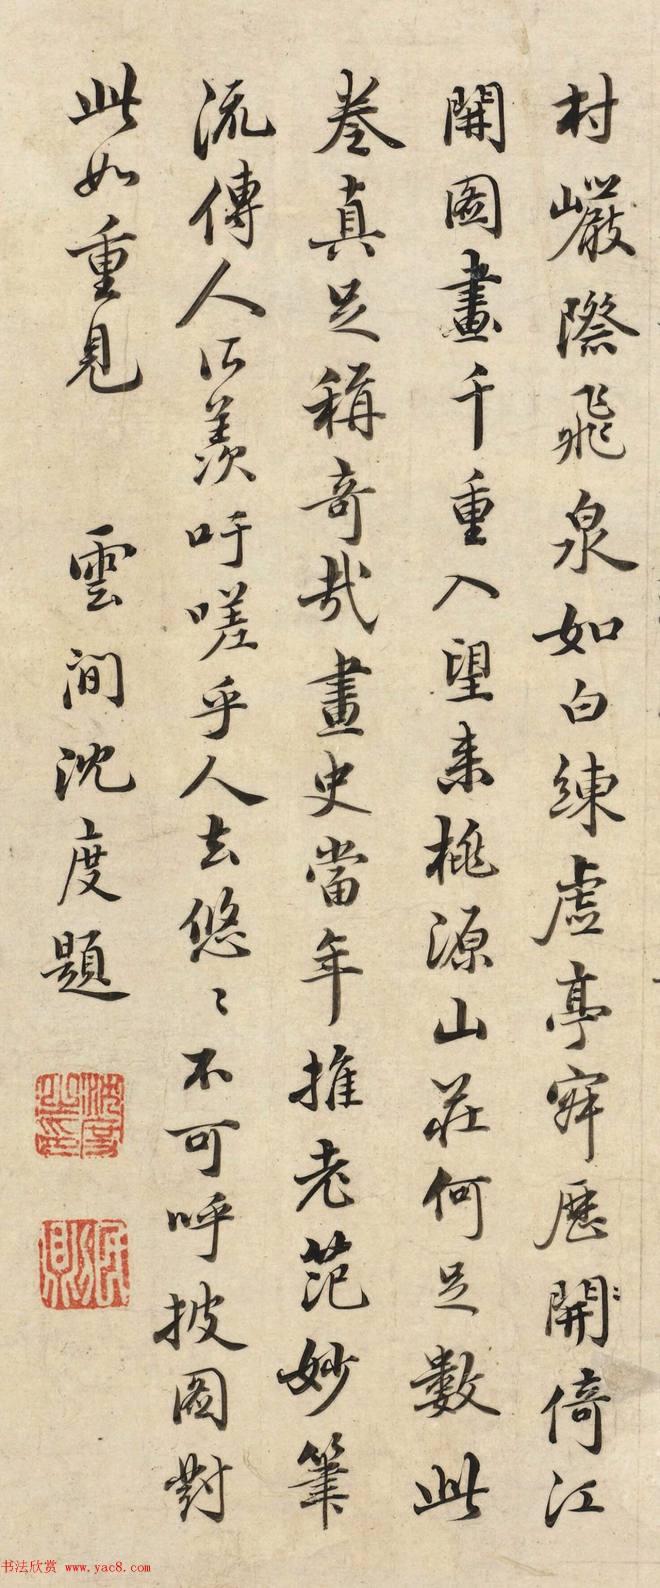 村巖際飛泉如白練虛亭寂歷開倚江
開圖畫千重入望来桃源山莊何足數此
卷真足稱奇哉畫史當年推老范妙筆
流傳人所羨吁嗟乎人去悠〻不可呼披圖對
此如重見 雲間沈度題
沈度
書法欣赏 www.yac8.com